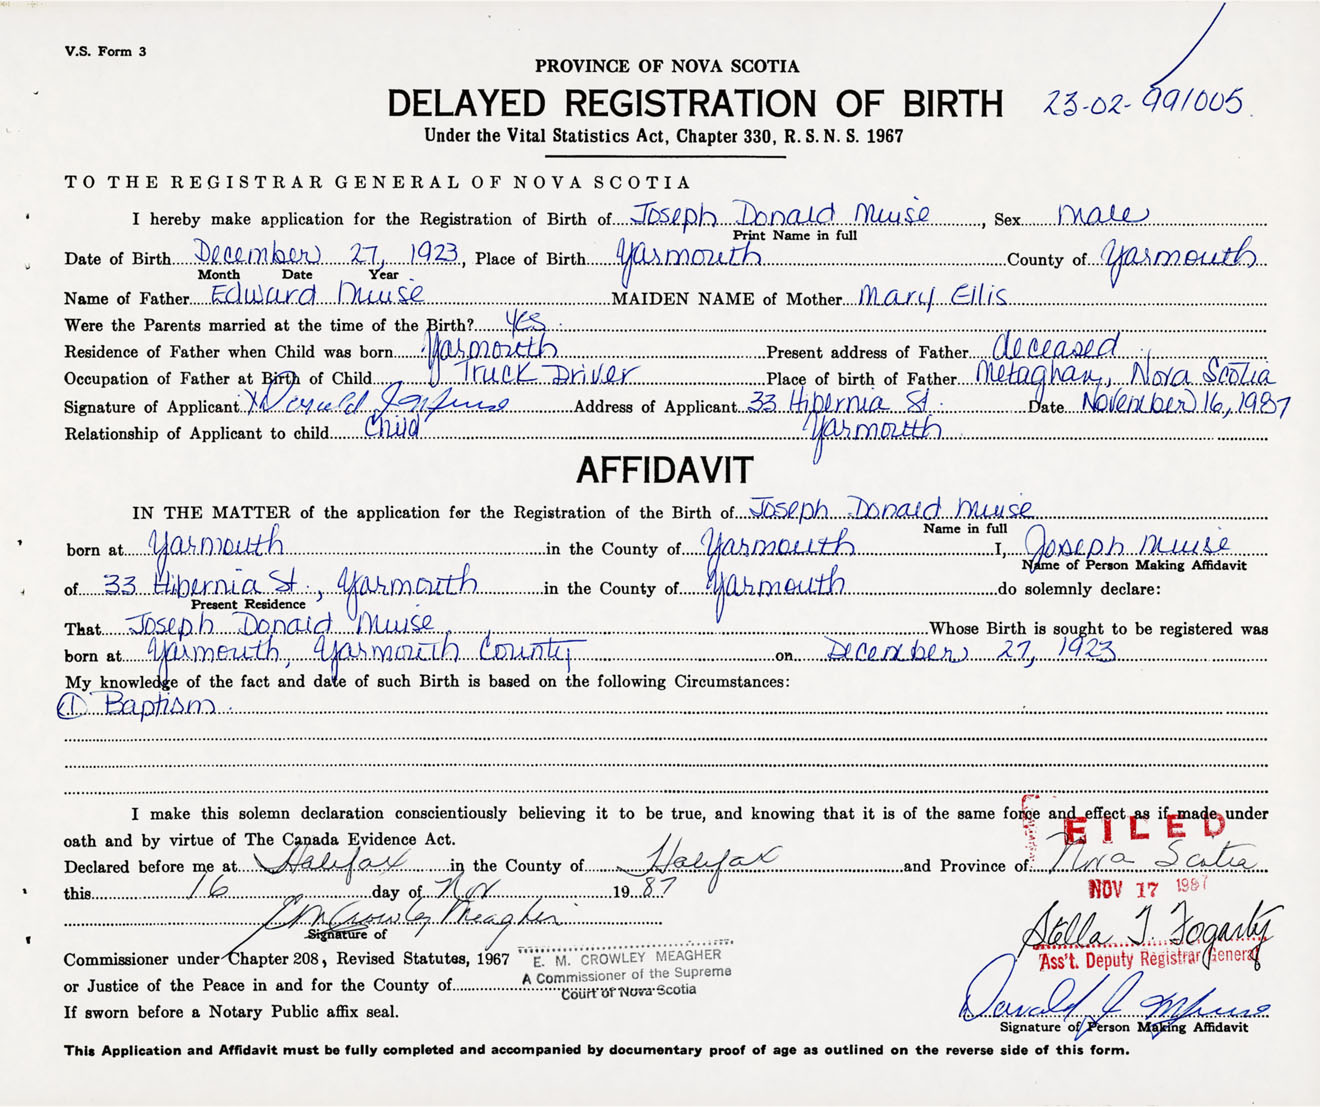 V.S. Form 3
PROVINCE OF NOVA SCOTIA
DELAYED REGISTRATION OF BIRTH 23-02-991005.
Under the Vital Statistics Act, Chapter 330, R. S. N. S. 1967
TO THE REGISTRAR GENERAL OF NOVA SCOTIA
I hereby make application for the Registration of Birth of Joseph Donald Muise, Sex male
Print Name in full
Date of Birth December 27, 1923, Place of Birth Yarmouth County of Yarmouth
Month Date Year
Name of Father Edward Muise MAIDEN NAME of Mother Mary Ellis
Were the Parents married at the time of the Birth? yes
Residence of Father when Child was born Yarmouth Present address of Father deceased
Occupation of Father at Birth of Child Truck Driver Place of birth of Father Metaghan, Nova Scotia
Signature of Applicant X Donald J Muise Address of Applicant 33 Hibernia St. Date November 16, 1987
Relationship of Applicant to child Child Yarmouth
AFFIDAVIT
IN THE MATTER of the application for the Registration of the Birth of Joseph Donald Muise
Name in full
born at Yarmouth in the County of Yarmouth I, Joseph Muise
Name of Person Making Affidavit
of 33 Hibernia St., Yarmouth in the County of Yarmouth do solemnly declare:
Present Residence
That Joseph Donald Muise Whose Birth is sought to be registered was
born at Yarmouth, Yarmouth County on December 27, 1923
My knowledge of the fact and date of such Birth is based on the following Circumstances:
① Baptism
I make this solemn declaration conscientiously believing it to be true, and knowing that it is of the same force and effect as if made under
oath and by virtue of The Canada Evidence Act.
FILED
Declared before me at Halifax in the County of Halifax and Province of Nova Scotia
this 16 day of Nov 1987
NOV 17 1987
E M Crowley Meagher
Signature of
Stella T. Fogarty
Ass't. Deputy Registrar General
Commissioner under Chapter 208, Revised Statutes, 1967
E. M. CROWLEY MEAGHER
A Commissioner of the Supreme
Court of Nova Scotia
or Justice of the Peace in and for the County of
If sworn before a Notary Public affix seal.
Donald J Muise
Signature of Person Making Affidavit
This Application and Affidavit must be fully completed and accompanied by documentary proof of age as outlined on the reverse side of this form.